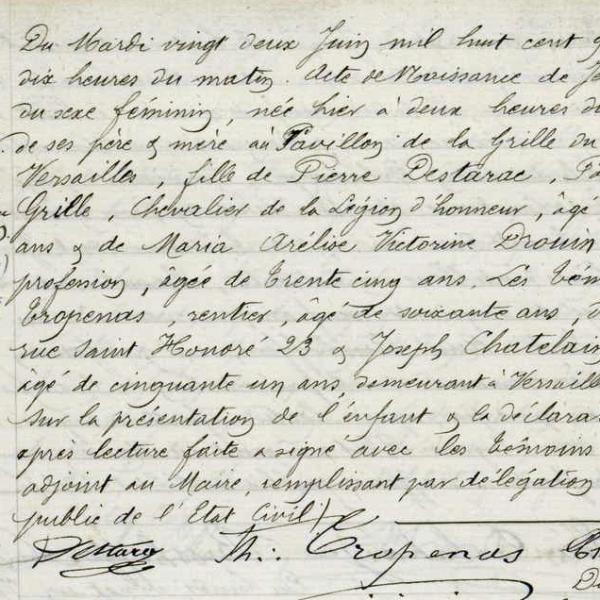 Du Mardi vingt deux Juin mil huit cent q
dix heures du matin. Acte de Naissance de Je
du sexe féminin, née hier à deux heures du
de ses père & mère au Pavillon de la Grille du
Versailles, fille de Pierre Destarac, Po
Grille, Chevalier de la Légion d'honneur, âgé
ans & de Maria Arélise Victorine Drouin
profession, âgée de trente cinq ans. Les tém
Tropenas, rentier, âgé de soixante ans, d
rue Saint Honoré 23 & Joseph Chatelain
âgé de cinquante un ans, demeurant à Versaill
Sur la présentation de l'enfant & la déclara
après lecture faite a signé avec les témoins
adjoint au Maire, remplissant par délégation
public de l'Etat Civil
Destarac Th: Tropenas